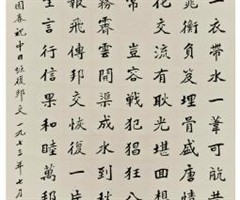 一衣帶水一葦可航
兆衡負笈埋骨盛唐情
化交流有耿光堪回
豈容戰犯猖狂八
霧霽雲開渠成水
報飛傳邦交恢復一片
生言行信果和睦萬邦
祝中日恢復邦交一九七二年七月